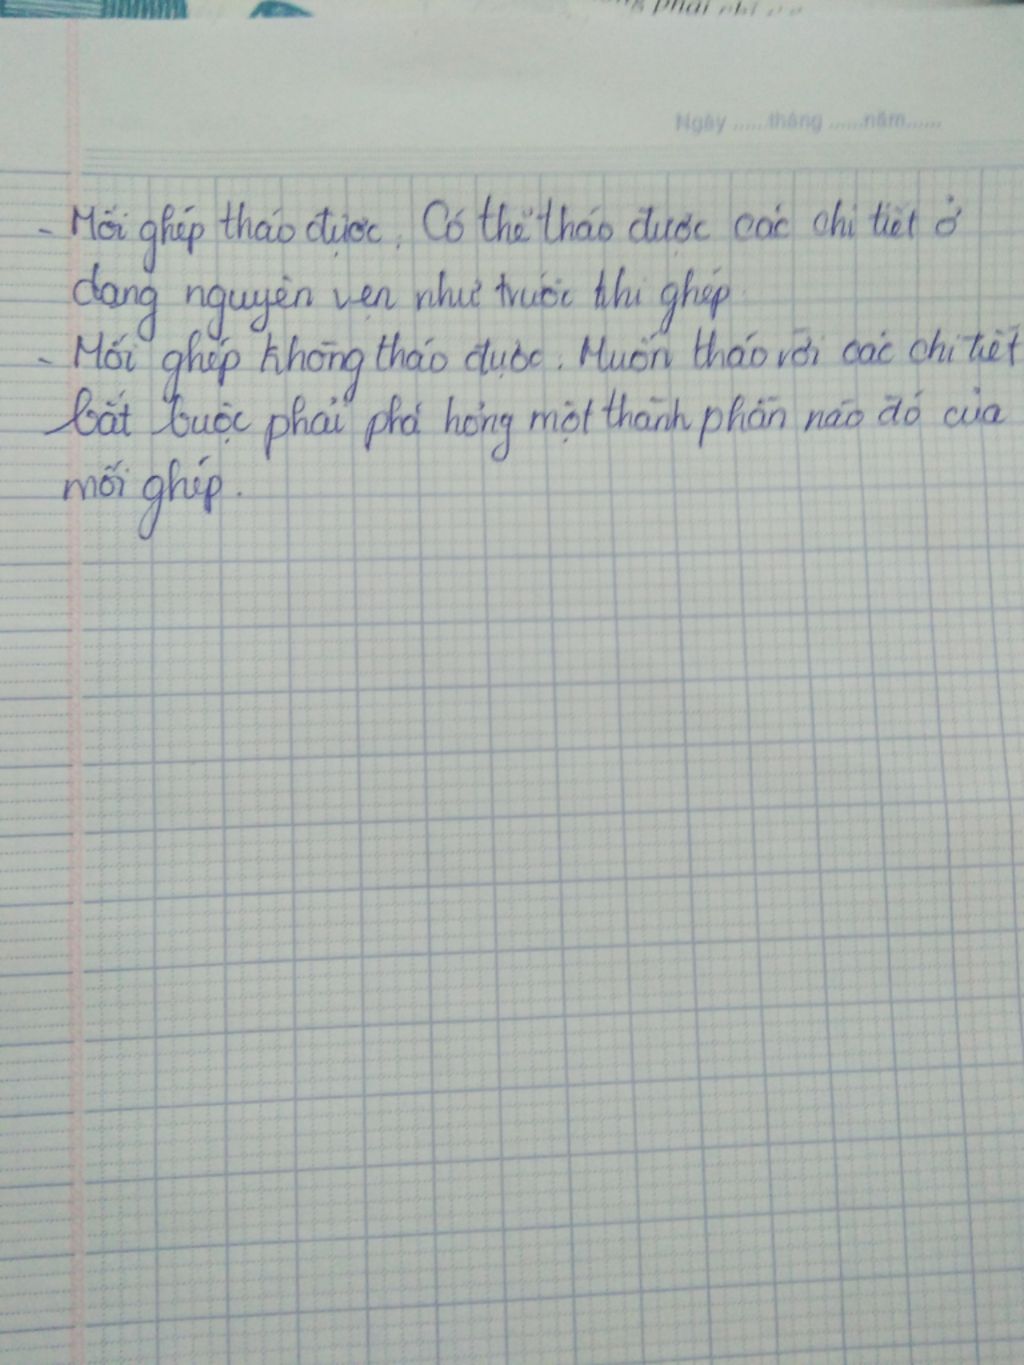 phải chỉ
Ngày ......tháng ......năm......
- Mối ghép tháo được. Có thể tháo được các chi tiết ở
dạng nguyên vẹn như trước khi ghép
- Mối ghép không tháo được. Muốn tháo rời các chi tiết
bắt buộc phải phá hỏng một thành phần nào đó của
mối ghép.